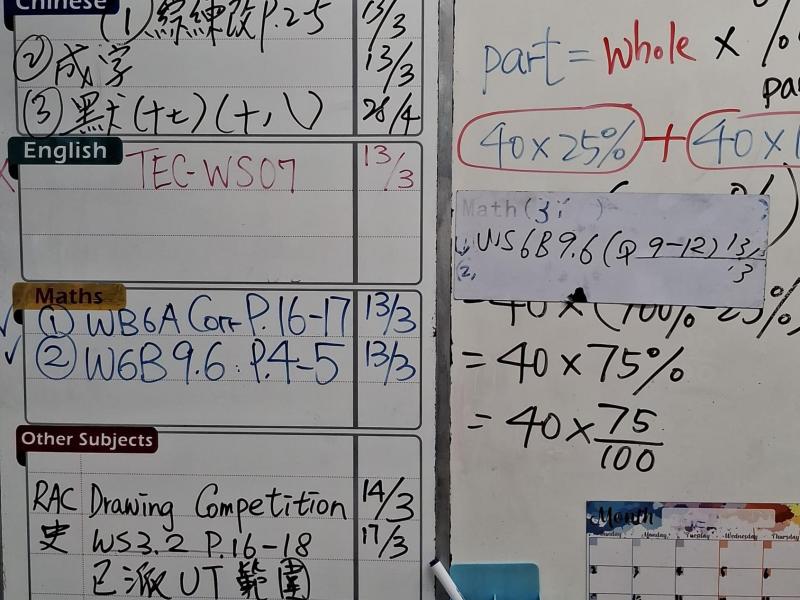 Chinese
(1) 綜練改 P.25 13/3
② 成字 13/3
(3) 默 (十七) (十八) 28/4
English
TEC-WS07 13/3
Maths
① WB6A Corr P.16-17 13/3
② W6B 9.6 P.4-5 13/3
Other Subjects
RAC Drawing Competition 14/3
史 WS3.2 P.16-18 17/3
已派UT範圍
part = whole × %
40×25% + 40×
Math(
WS 6B 9.6 (Q 9-12) 13/3
= 40 × (100% - 25%)
= 40 × 75%
= 40 × 75/100
Month
Monday Tuesday Wednesday Thursday